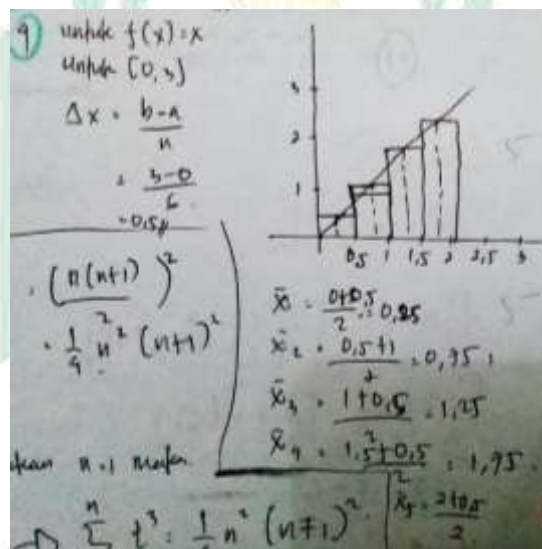 9 untuk f(x)=x
untuk [0, 3]
Δx = b-a
n
= 3-0
6
= 0,5
= (n(n+1))²
2
= 1/4 n² (n+1)²
n=1 maka
Σ t³ = 1/4 n² (n+1)²
n
3
2
1
0,5 1 1,5 2 2,5 3
x̄ = 0+0,5 = 0,25
2
x̄₂ = 0,5+1 = 0,75
2
x̄₃ = 1+0,5 = 1,25
2
x̄₄ = 1,5+0,5 = 1,75
2
x̄₅ = 2+0,5
2